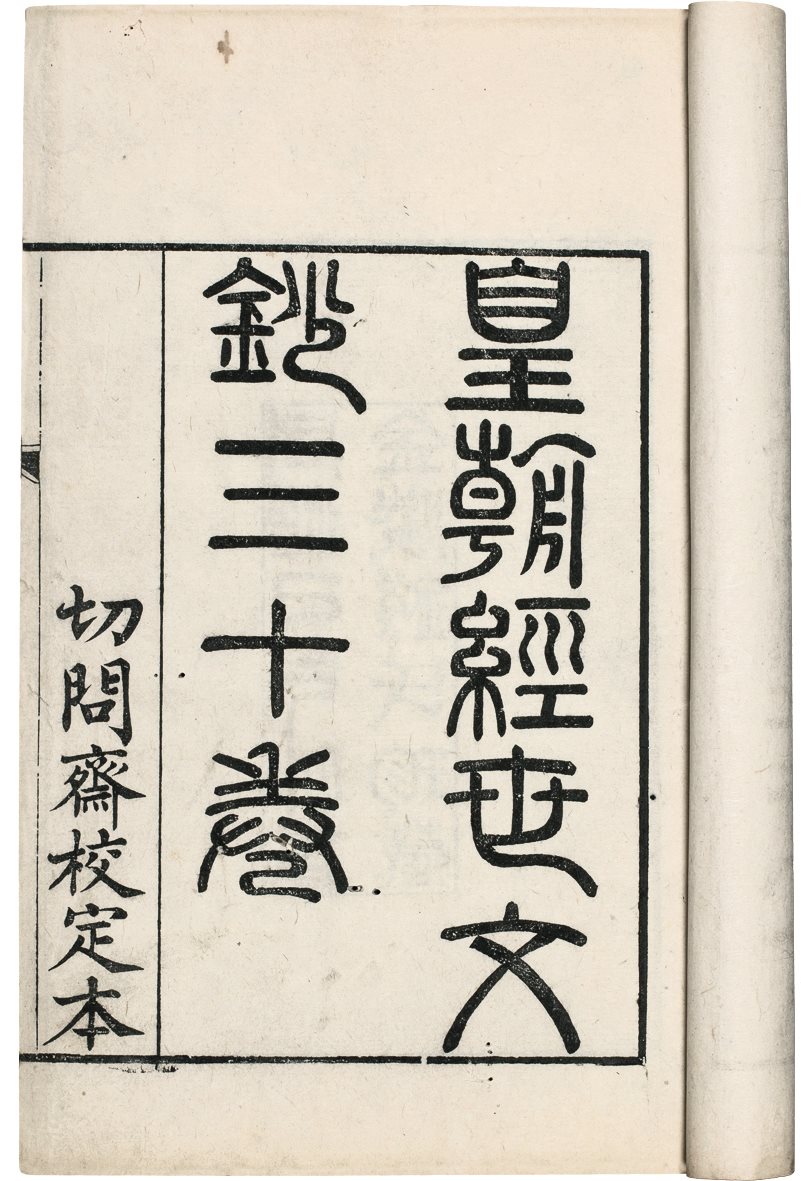 皇朝經世文
鈔三十卷
切問齋校定本